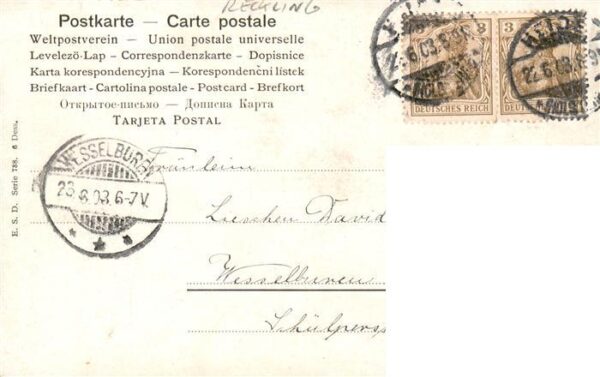 RECKLING
Postkarte — Carte postale
Weltpostverein — Union postale universelle
Levelező-Lap - Correspondenzkarte - Dopisnice
Karta korespondencyjna — Korespondenční lístek
Briefkaart - Cartolina postale - Postcard - Brefkort
Открытое-письмо — Дописна Карта
TARJETA POSTAL
3
3
DEUTSCHES REICH
DEUTSCHES
HEIDE
22.6.03.8-9N
*(HOLSTEIN)*
WESSELBUREN
23.6.03.6-7V.
* * *
E. S. D. Serie 738. 6 Dess.
Fräulein
Lieschen David
Wesselburen